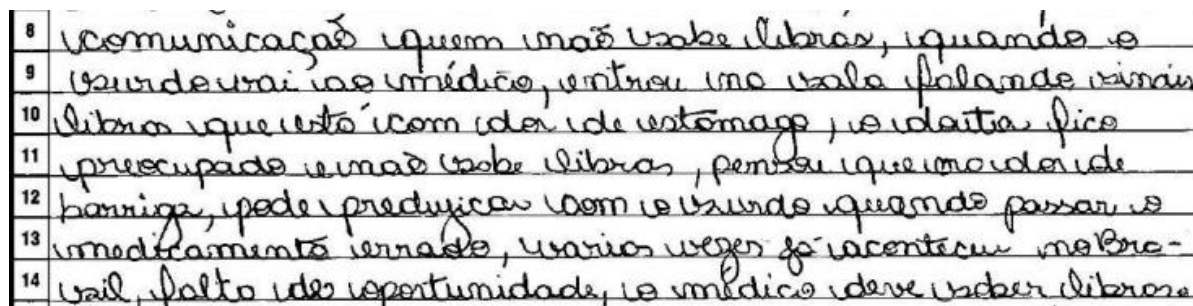 8 comunicação quem não sabe libras, quando o
9 surdo vai ao médico, entrou na sala falando sinais
10 libras que está com dor de estômago, o doutor fica
11 preocupado e não sabe libras, pensou que no dor de
12 barriga, pode predujicar com o surdo quando passar o
13 medicamento errado, varios vezes já aconteceu no Bra-
14 sil, falta de oportunidade, o médico deve saber libras